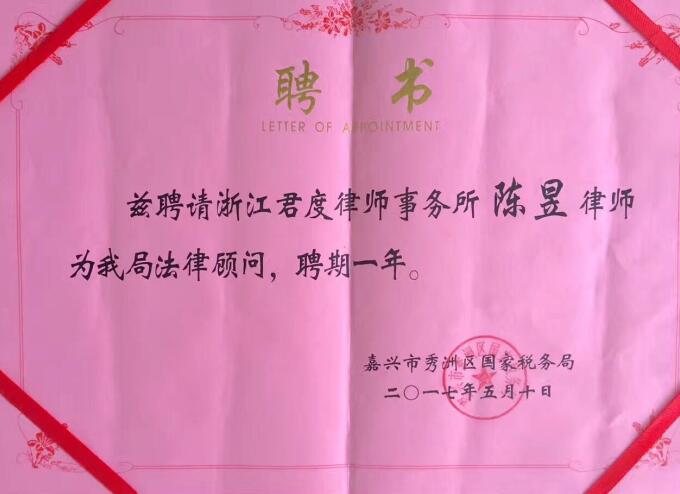 聘 书
LETTER OF APPOINTMENT
兹聘请浙江君度律师事务所 陈昱 律师
为我局法律顾问，聘期一年。
嘉兴市秀洲区国家税务局
二〇一七年五月十日